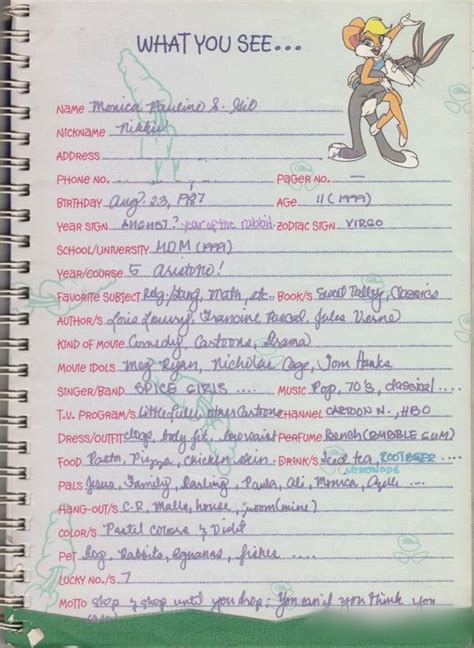 WHAT YOU SEE...
NAME Monica Pauline S. Gil
NICKNAME Nikkii
ADDRESS
PHONE NO. PAGER NO. —
BIRTHDAY Aug. 23, 1987 AGE 11 (1999)
YEAR SIGN AUGUST? year of the rabbit ZODIAC SIGN VIRGO
SCHOOL/UNIVERSITY M.D.M (1999)
YEAR/COURSE 5
FAVORITE SUBJECT Rdg/Lang, Math, etc. BOOK/S Sweet Valley, Classics
AUTHOR/S Lois Lowry, Francine Pascal, Jules Verne
KIND OF MOVIE Comedy, Cartoons, Drama
MOVIE IDOLS Meg Ryan, Nicholas Cage, Tom Hanks
SINGER/BAND SPICE GIRLS .... MUSIC Pop, 70's, classical ....
T.V. PROGRAM/S other Cartoons CHANNEL CARTOON N., HBO
DRESS/OUTFIT body fit... PERFUME Bench (BUBBLE GUM)
FOOD Pasta, Pizza, chicken skin DRINK/S Iced tea, ROOTBEER ....
LEMONADE
PALS Jesus, Family, Darling, Paula, Ali, Monica, ....
HANG-OUT/S C.R. Malls, house, room (mine)
COLOR/S Pastel colors & Violet
PET Dog, Rabbits, Iguanas, fishes ....
LUCKY NO./S 7
MOTTO shop & shop until you drop; You can if you think you